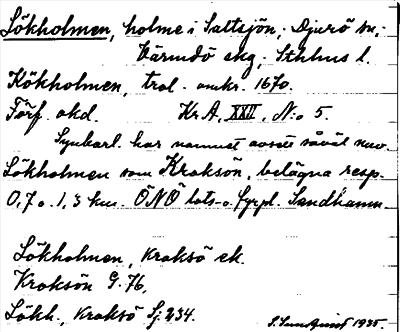 Lökholmen, holme i Saltsjön, Djurö sn,
Värmdö skg, Sthlms l.
Kökholmen, trol. omkr. 1670.
Förf. okd. Kr A, XXII, N:o 5.
Synbarl. har namnet avsett såväl nuv.
Lökholmen som Kroksön, belägna resp.
0,7 o. 1,3 km. ÖNÖ lots- o. fyrpl. Sandhamn.
Lökholmen, Kroksö ek.
Kroksön G. 76,
Lökh., Kroksö Sj. 234.
1935.